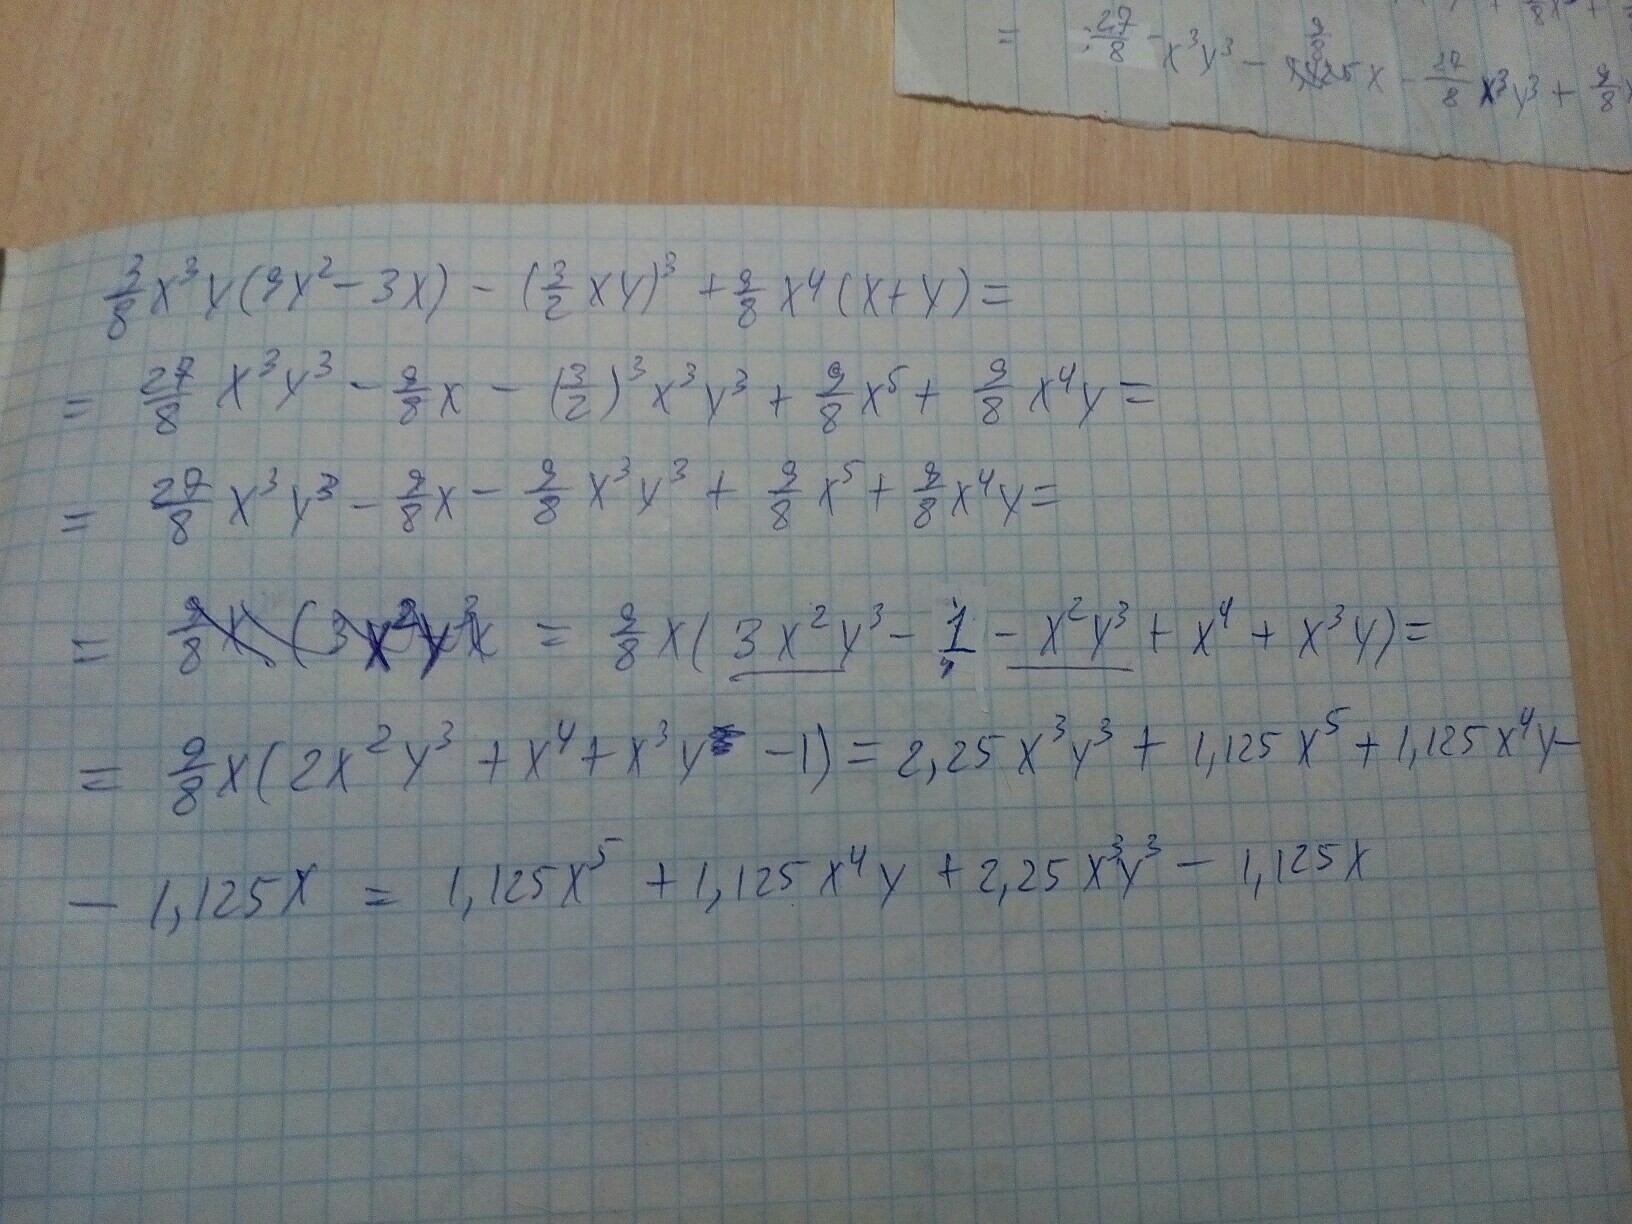 = 27/8 x³y³ − 9/8 x − 27/8 x³y³ + 9/8
3/8 x³y(9y² − 3x) − (3/2 xy)³ + 9/8 x⁴(x+y) =
= 27/8 x³y³ − 9/8 x − (3/2)³ x³y³ + 9/8 x⁵ + 9/8 x⁴y =
= 27/8 x³y³ − 9/8 x − 9/8 x³y³ + 9/8 x⁵ + 9/8 x⁴y =
= 9/8 x (3x²y³x = 9/8 x( 3x²y³ − 1 − x²y³ + x⁴ + x³y) =
= 9/8 x(2x²y³ + x⁴ + x³y − 1) = 2,25x³y³ + 1,125x⁵ + 1,125x⁴y −
− 1,125x = 1,125x⁵ + 1,125x⁴y + 2,25x³y³ − 1,125x